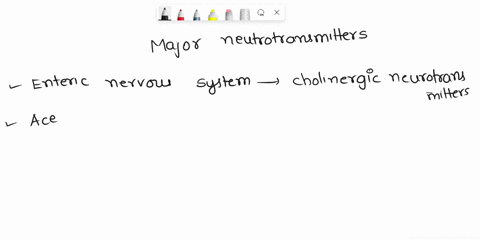 Major neutrotransmitters
Enteric nervous system → cholinergic neurotrans
mitters
Ace